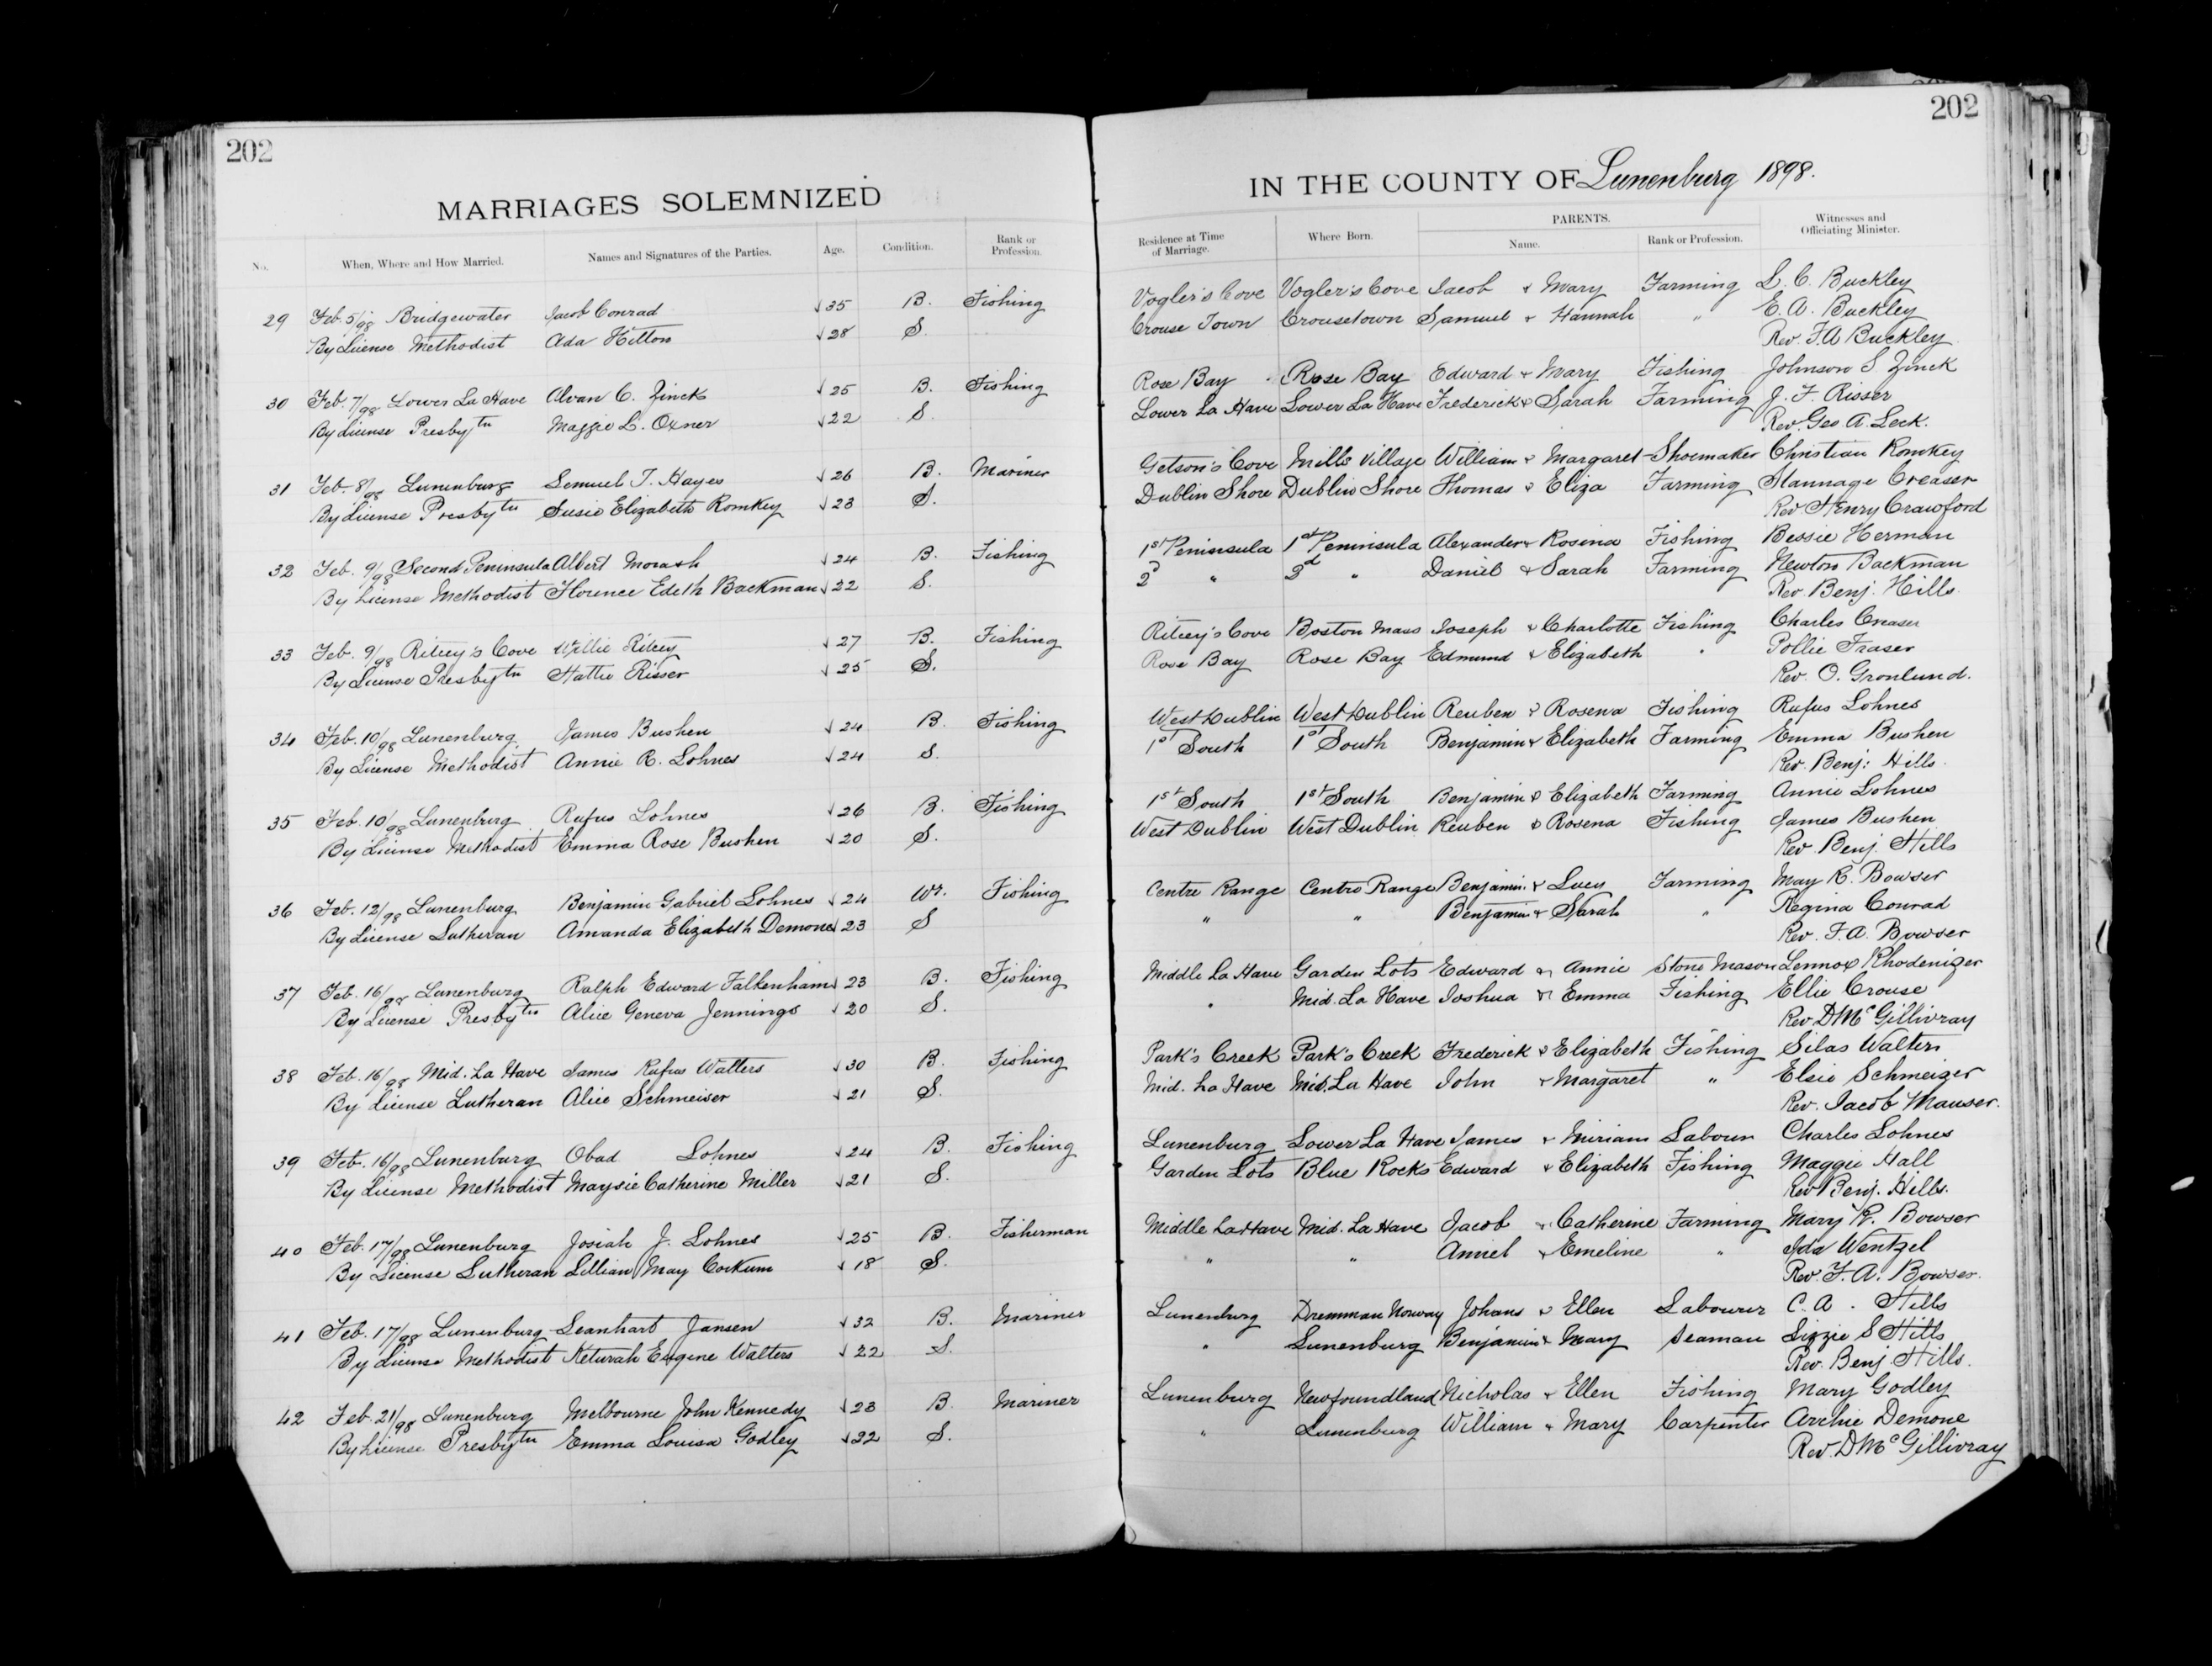 202
MARRIAGES SOLEMNIZED
No. When, Where and How Married. Names and Signatures of the Parties. Age. Condition. Rank or Profession.
29 Feb. 5/98 Bridgewater Jacob Conrad √35 B. Fishing
By License Methodist Ada Hilton √28 S.
30 Feb. 7/98 Lower La Have Alvan C. Zincks √25 B. Fishing
By License Presbytn Maggie L. Oxner √22 S.
31 Feb. 8/98 Lunenburg Lemuel T. Hayes √26 B. Mariner
By License Presbytn Susie Elizabeth Romkey √23 S.
32 Feb. 9/98 Second Peninsula Albert Morash √24 B. Fishing
By License Methodist Florence Edeth Backman √22 S.
33 Feb. 9/98 Ritcey's Cove Willie Ritcey √27 B. Fishing
By License Presbytn Hattie Risser √25 S.
34 Feb. 10/98 Lunenburg James Bushen √24 B. Fishing
By License Methodist Annie R. Lohnes √24 S.
35 Feb. 10/98 Lunenburg Rufus Lohnes √26 B. Fishing
By License Methodist Emma Rose Bushen √20 S.
36 Feb. 12/98 Lunenburg Benjamin Gabriel Lohnes √24 Wr. Fishing
By License Lutheran Amanda Elizabeth Demone √23 S
37 Feb. 16/98 Lunenburg Ralph Edward Falkenham √23 B. Fishing
By License Presbytn Alice Geneva Jennings √20 S.
38 Feb. 16/98 Mid. La Have James Rufus Walters √30 B. Fishing
By License Lutheran Alice Schmeiser √21 S.
39 Feb. 16/98 Lunenburg Obad Lohnes √24 B. Fishing
By License Methodist Maysie Catherine Miller √21 S.
40 Feb. 17/98 Lunenburg Josiah J. Lohnes √25 B. Fisherman
By License Lutheran Lillian May Corkum √18 S.
41 Feb. 17/98 Lunenburg Leanhart Jansen √32 B. Mariner
By License Methodist Keturah Eugene Walters √22 S.
42 Feb. 21/98 Lunenburg Melbourne John Kennedy √23 B. Mariner
By License Presbytn Emma Louisa Godley √22 S.
202
IN THE COUNTY OF Lunenburg 1898.
Residence at Time of Marriage. Where Born. PARENTS. Name. Rank or Profession. Witnesses and Officiating Minister.
Vogler's Cove Vogler's Cove Jacob & Mary Farming L. C. Buckley
Crouse Town Crousetown Samuel & Hannah " E. A. Buckley
Rev. F. A Buckley
Rose Bay Rose Bay Edward & Mary Fishing Johnson S Zinck
Lower La Have Lower La Have Frederick & Sarah Farming J. F. Risser
Rev. Geo. A. Leck.
Getson's Cove Mills Village William & Margaret Shoemaker Christian Romkey
Dublin Shore Dublin Shore Thomas & Eliza Farming Stannage Creaser
Rev Henry Crawford
1st Peninsula 1st Peninsula Alexander & Rosina Fishing Bessie Herman
2d " 2d " Daniel & Sarah Farming Newton Backman
Rev. Benj. Hills.
Ritcey's Cove Boston Mass Joseph & Charlotte Fishing Charles Creaser
Rose Bay Rose Bay Edmund & Elizabeth " Pollie Fraser
Rev. O. Gronlund.
West Dublin West Dublin Reuben & Rosena Fishing Rufus Lohnes
1st South 1st South Benjamin & Elizabeth Farming Emma Bushen
Rev. Benj: Hills.
1st South 1st South Benjamin & Elizabeth Farming Annie Lohnes
West Dublin West Dublin Reuben & Rosena Fishing James Bushen
Rev. Benj. Hills
Centre Range Centre Range Benjamin & Lucy Farming May R. Bowser
" " Benjamin & Sarah " Regina Conrad
Rev. F. A. Bowser
Middle La Have Garden Lots Edward & Annie Stone Mason Lennox Rhodenizer
" Mid. La Have Joshua & Emma Fishing Ellie Crouse
Rev D Mc Gillivray
Park's Creek Park's Creek Frederick & Elizabeth Fishing Silas Walters
Mid. La Have Mid. La Have John & Margaret " Elsie Schmeizer
Rev. Jacob Mauser.
Lunenburg Lower La Have James & Miriam Labour Charles Lohnes
Garden Lots Blue Rocks Edward & Elizabeth Fishing Maggie Hall
Rev Benj. Hills.
Middle LaHave Mid. La Have Jacob & Catherine Farming Mary R. Bowser
" " Anniel & Emeline " Ida Wentzel
Rev. F. A. Bowser.
Lunenburg Dremman Norway Johans & Ellen Labourer C. A. Hills
" Lunenburg Benjamin & Mary Seaman Lizzie S Hills
Rev. Benj. Hills.
Lunenburg Newfoundland Nicholas & Ellen Fishing Mary Godley
" Lunenburg William & Mary Carpenter Archie Demone
Rev. D Mc Gillivray